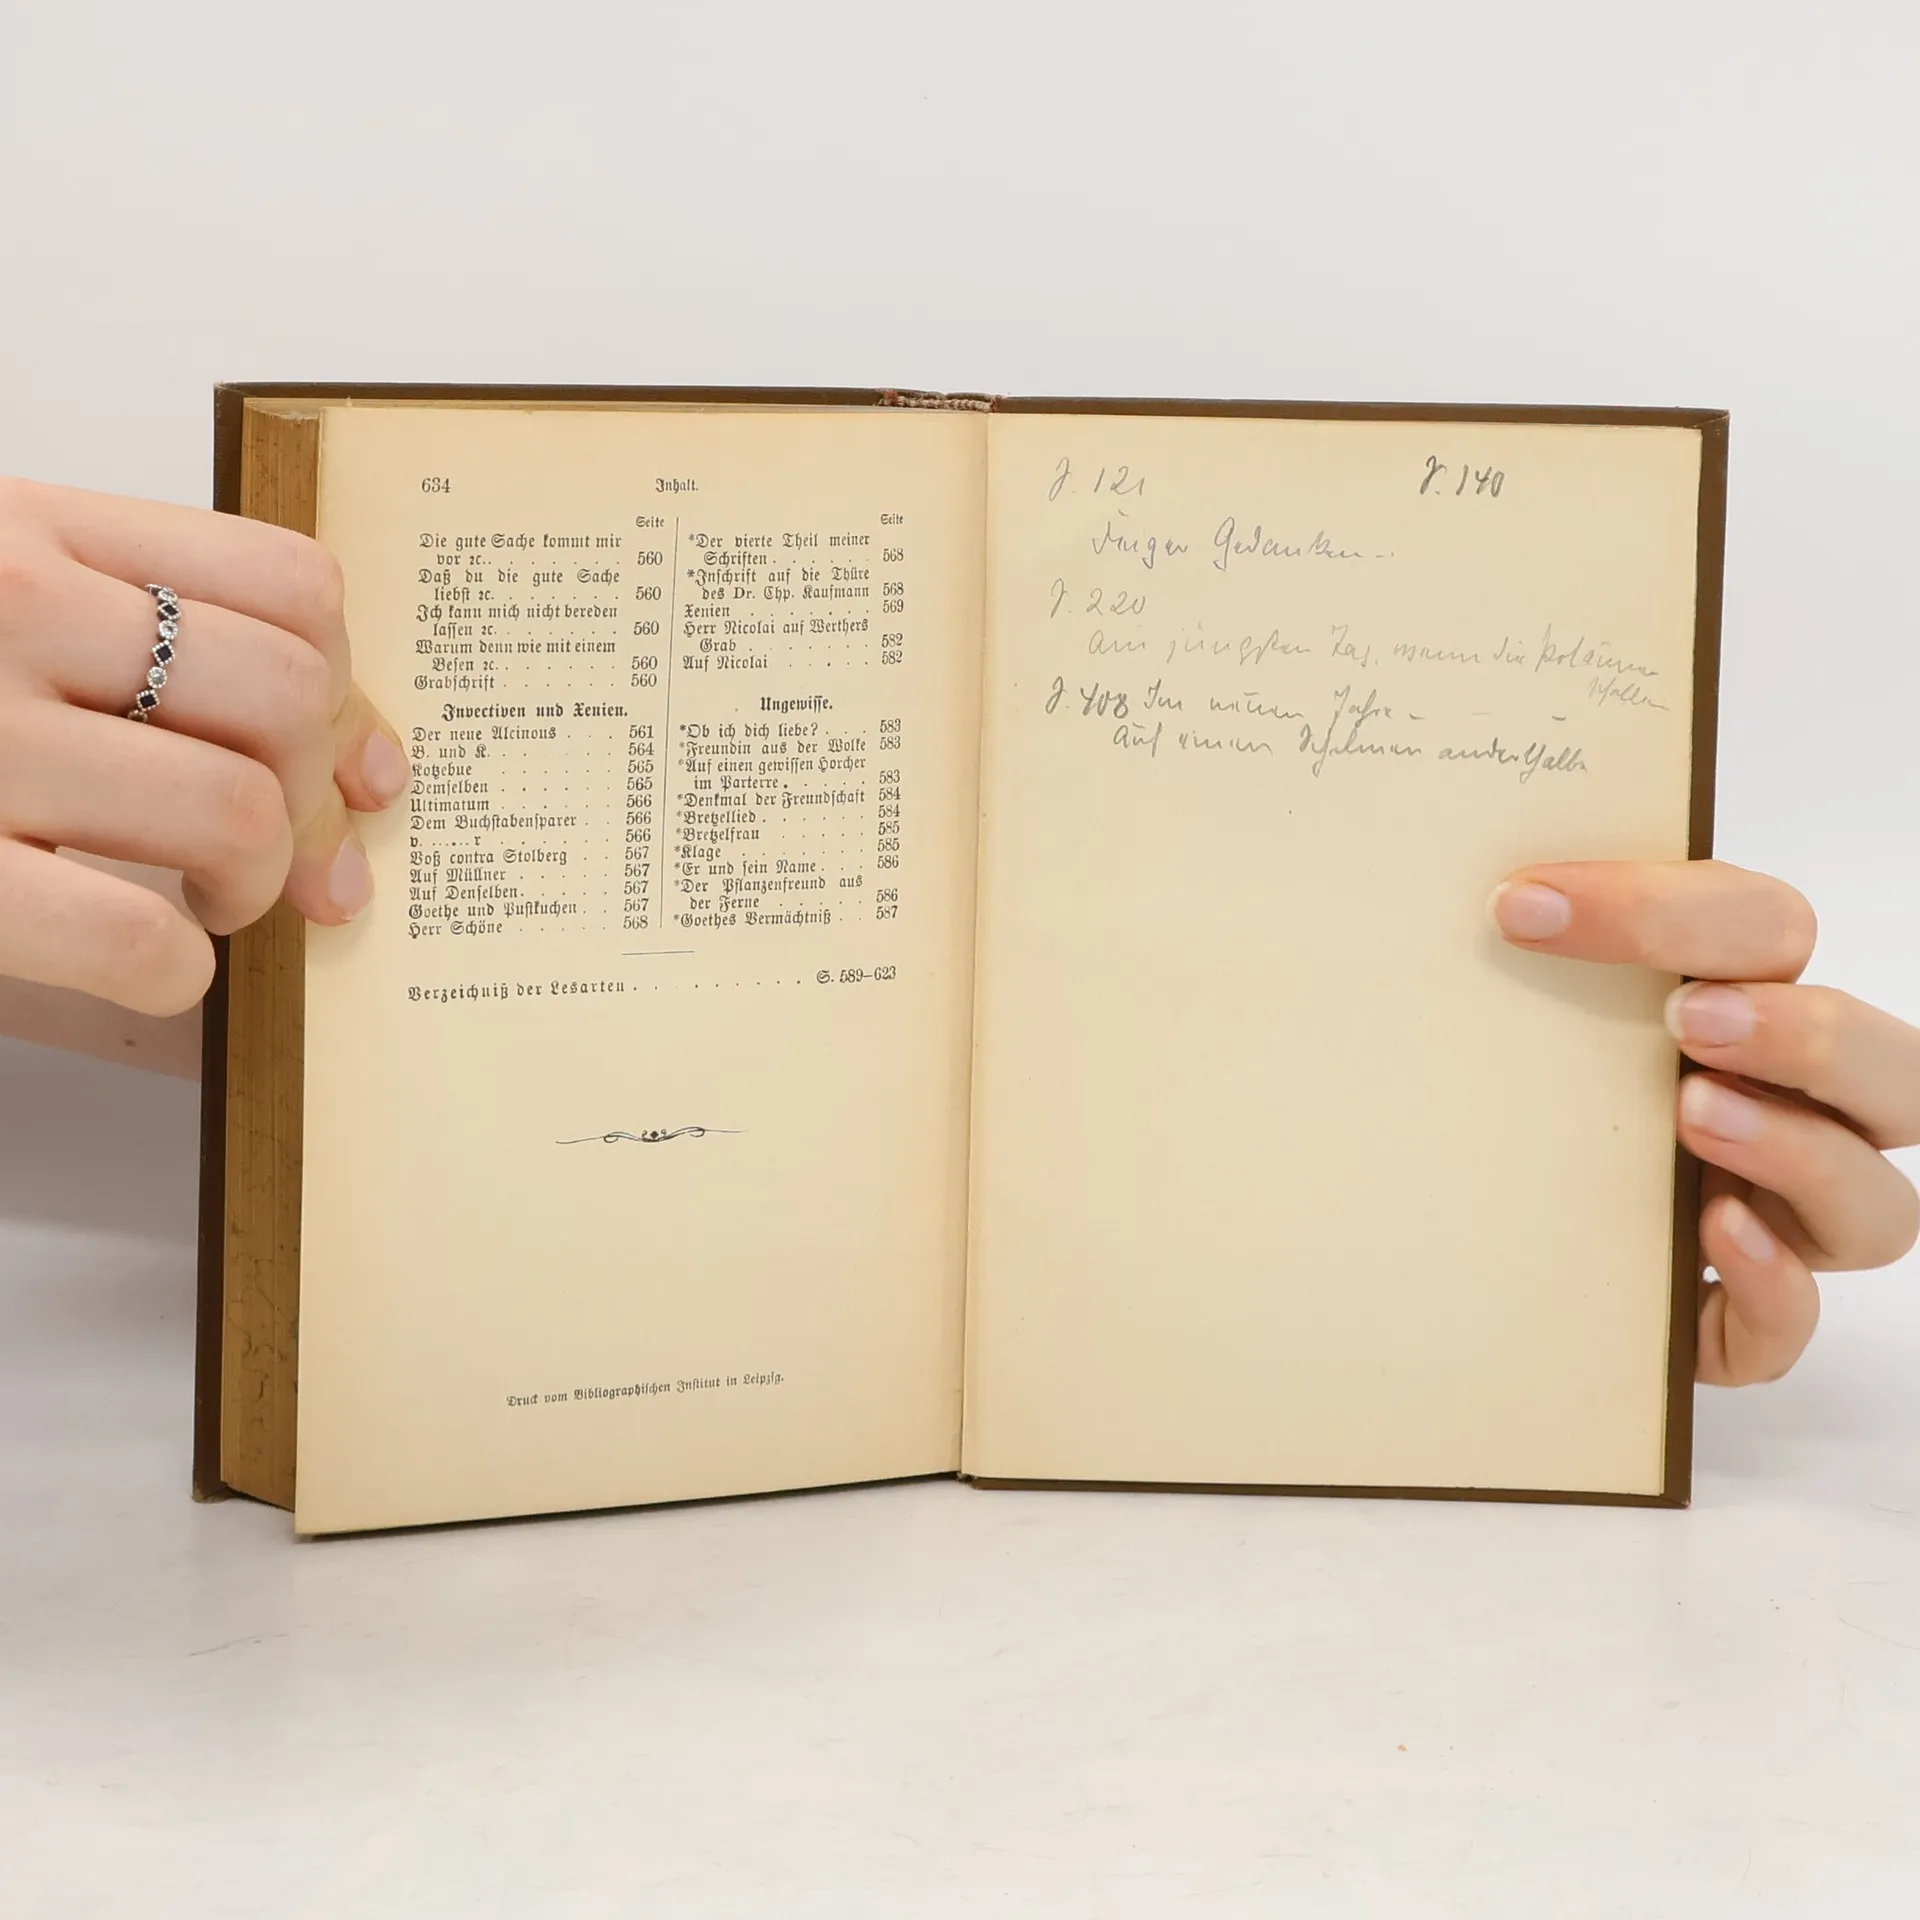 634 Inhalt.
Seite
Die gute Sache kommt mir
vor ꝛc. . . . . . . . 560
Daß du die gute Sache
liebst ꝛc. . . . . . . . 560
Ich kann mich nicht bereden
lassen ꝛc. . . . . . . 560
Warum denn wie mit einem
Besen ꝛc. . . . . . . 560
Grabschrift . . . . . . 560
Invectiven und Xenien.
Der neue Alcinous . . . 561
B. und K. . . . . . . 564
Kotzebue . . . . . . 565
Demselben . . . . . . 565
Ultimatum . . . . . . 566
Dem Buchstabensparer . . 566
v. ...... r . . . . . . 566
Voß contra Stolberg . . 567
Auf Müllner . . . . . 567
Auf Denselben. . . . . 567
Goethe und Pustkuchen . . 567
Herr Schöne . . . . . 568
Seite
*Der vierte Theil meiner
Schriften . . . . . . 568
*Inschrift auf die Thüre
des Dr. Chp. Kaufmann 568
Xenien . . . . . . . 569
Herr Nicolai auf Werthers
Grab . . . . . . . 582
Auf Nicolai . . . . . 582
Ungewisse.
*Ob ich dich liebe? . . . 583
*Freundin aus der Wolke 583
*Auf einen gewissen Horcher
im Parterre . . . . . 583
*Denkmal der Freundschaft 584
*Bretzellied . . . . . . 584
*Bretzelfrau . . . . . 585
*Klage . . . . . . . 585
*Er und sein Name . . . 586
*Der Pflanzenfreund aus
der Ferne . . . . . 586
*Goethes Vermächtniß . . 587
Verzeichniß der Lesarten . . . . . . . . . S. 589–623
Druck vom Bibliographischen Institut in Leipzig.
S. 121 S. 140
Gedanken -.
S. 220
Am jüngsten Tag, wenn die Posaunen
schallen
S. 408 Im neuen Jahre - - -
Auf einen Schelmen anderthalbe